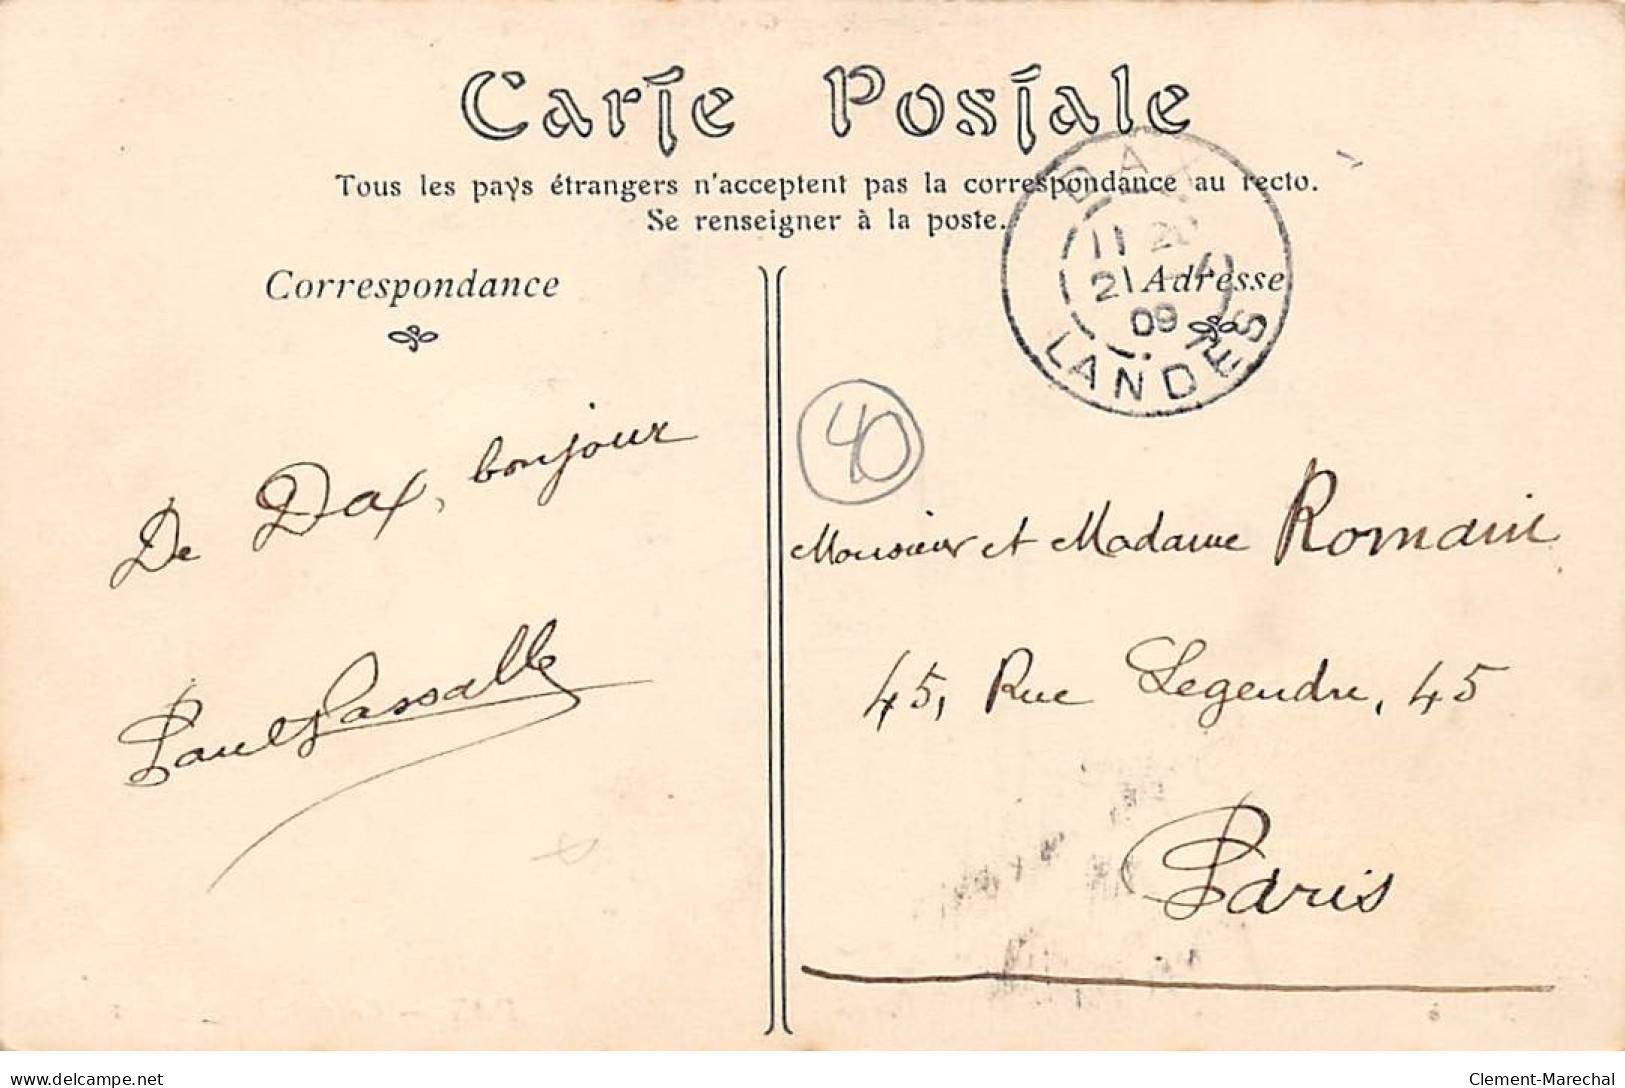 Carte Postale
Tous les pays étrangers n'acceptent pas la correspondance au recto.
Se renseigner à la poste.
Correspondance
De Dax, bonjour
Paul Lassalle
DAX
11 20
21
09
LANDES
Adresse
40
Monsieur et Madame Romain
45, Rue Legendre, 45
Paris
delcampe.net
Clement-Marechal